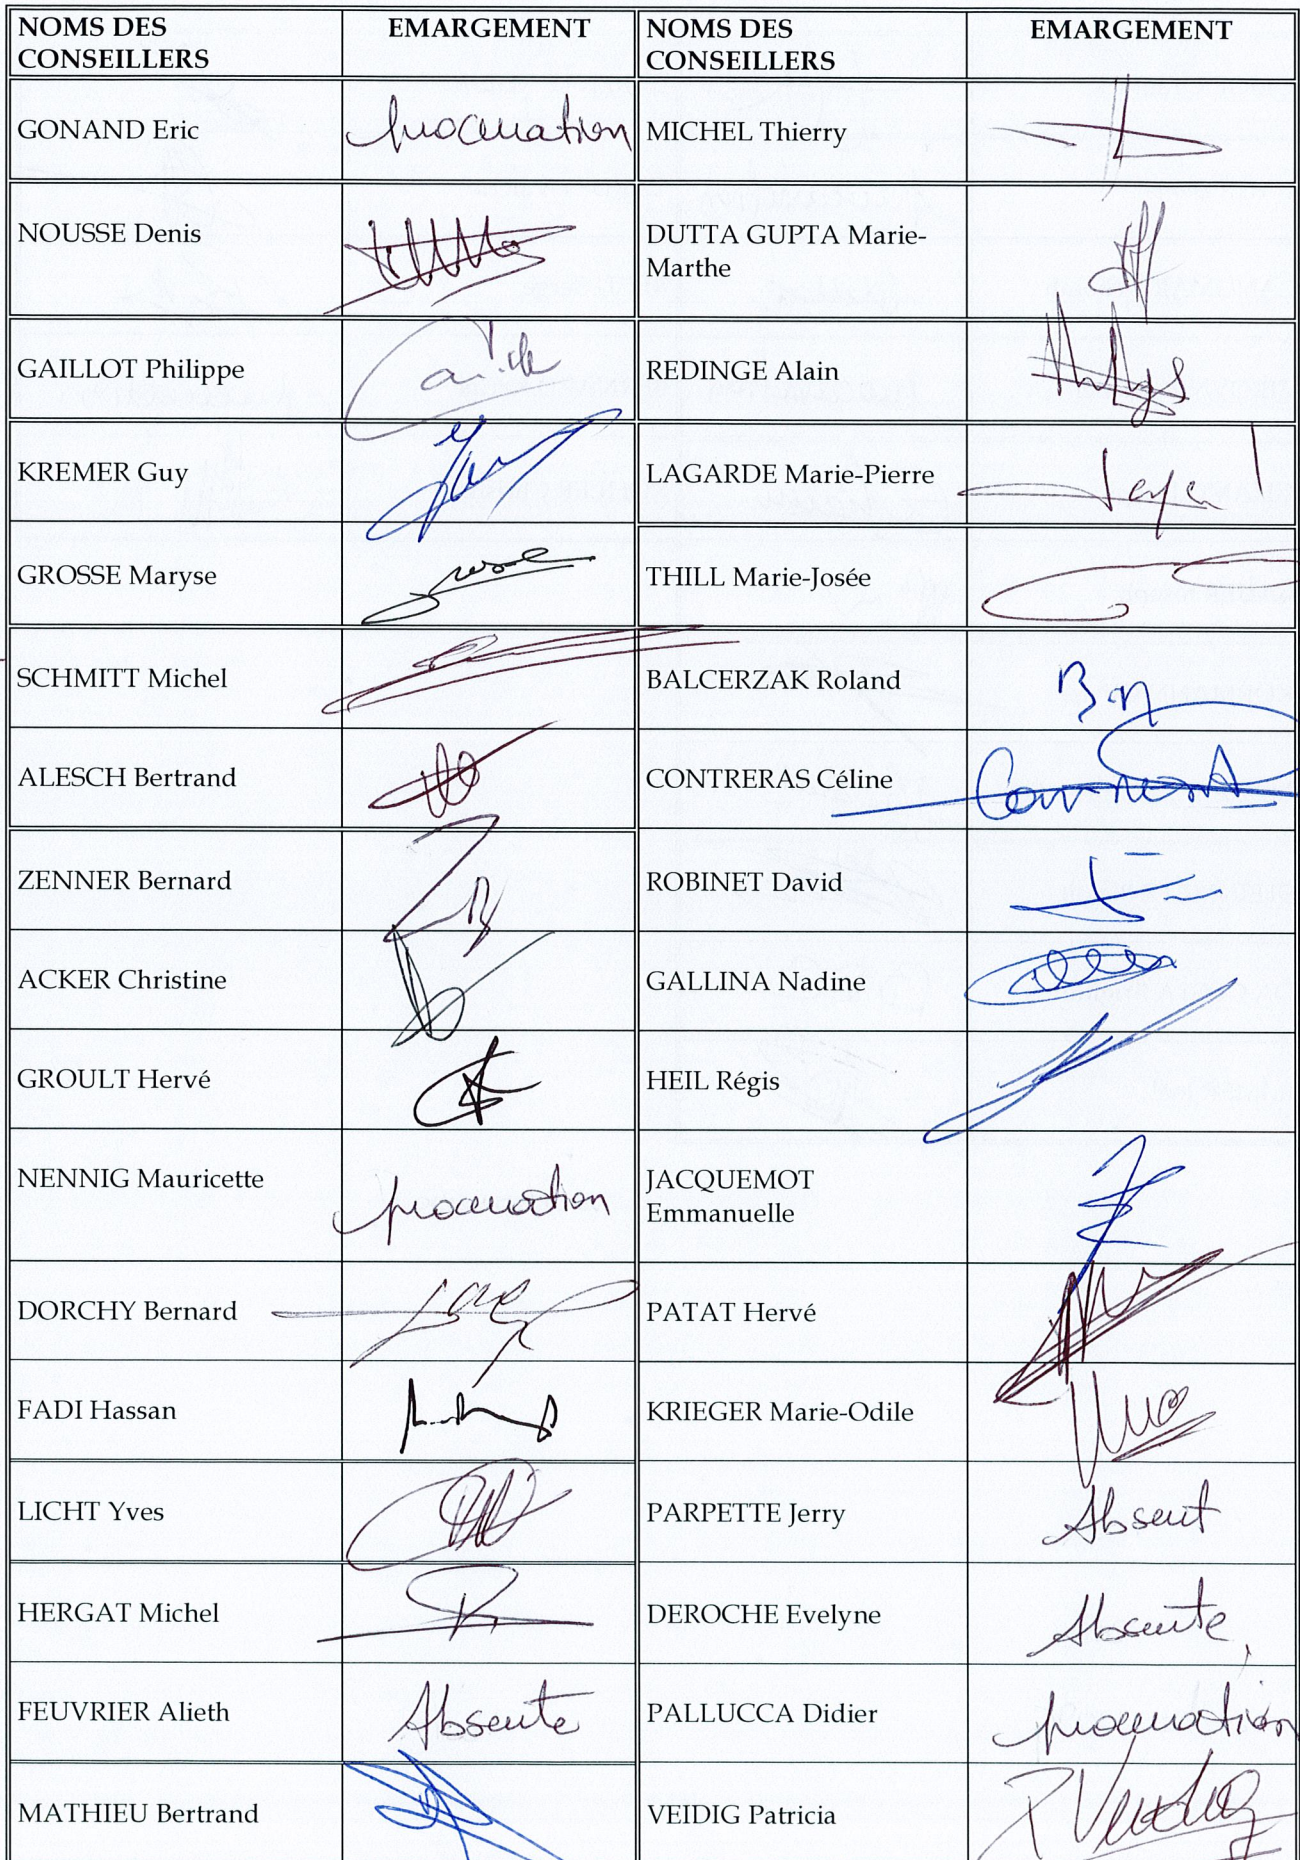 NOMS DES CONSEILLERS EMARGEMENT NOMS DES CONSEILLERS EMARGEMENT
GONAND Eric procuration MICHEL Thierry
NOUSSE Denis DUTTA GUPTA Marie-
Marthe
GAILLOT Philippe REDINGE Alain
KREMER Guy LAGARDE Marie-Pierre
GROSSE Maryse THILL Marie-Josée
SCHMITT Michel BALCERZAK Roland
ALESCH Bertrand CONTRERAS Céline
ZENNER Bernard ROBINET David
ACKER Christine GALLINA Nadine
GROULT Hervé HEIL Régis
NENNIG Mauricette procuration JACQUEMOT
Emmanuelle
DORCHY Bernard PATAT Hervé
FADI Hassan KRIEGER Marie-Odile
LICHT Yves PARPETTE Jerry Absent
HERGAT Michel DEROCHE Evelyne Absente
FEUVRIER Alieth Absente PALLUCCA Didier procuration
MATHIEU Bertrand VEIDIG Patricia P Veidig